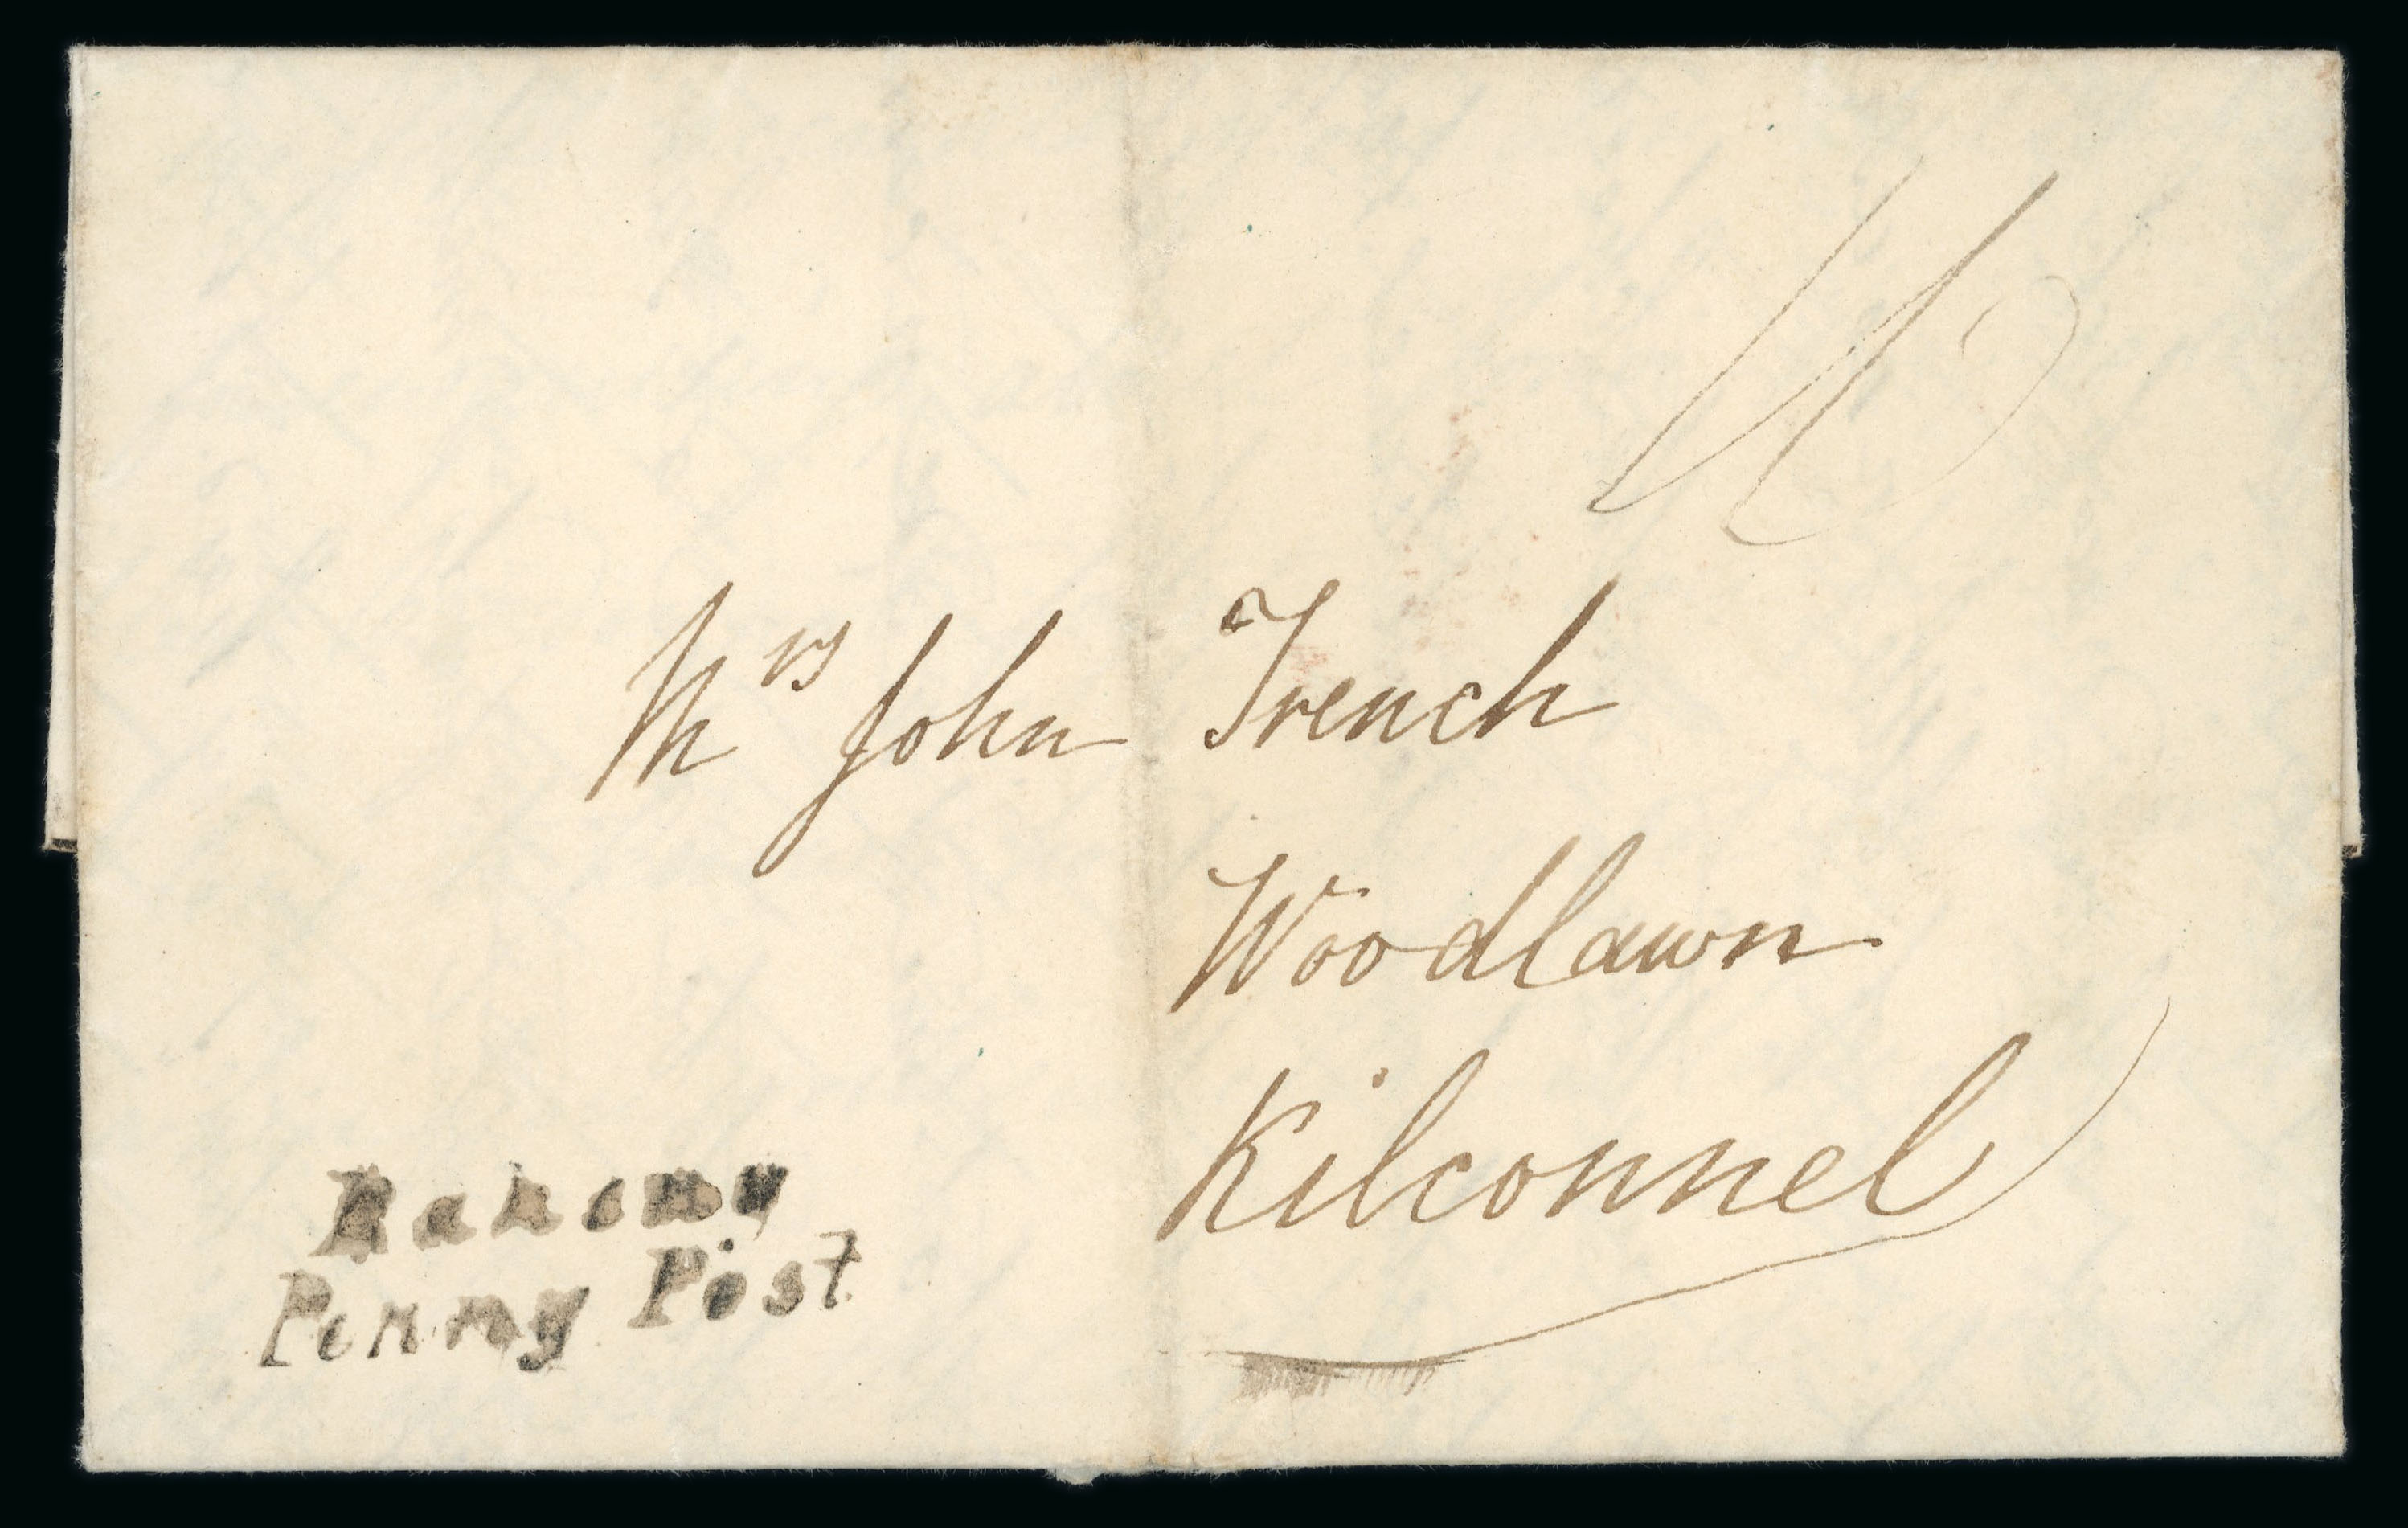 Mrs John Trench
Woodlawn
Kilconnel
Penny Post